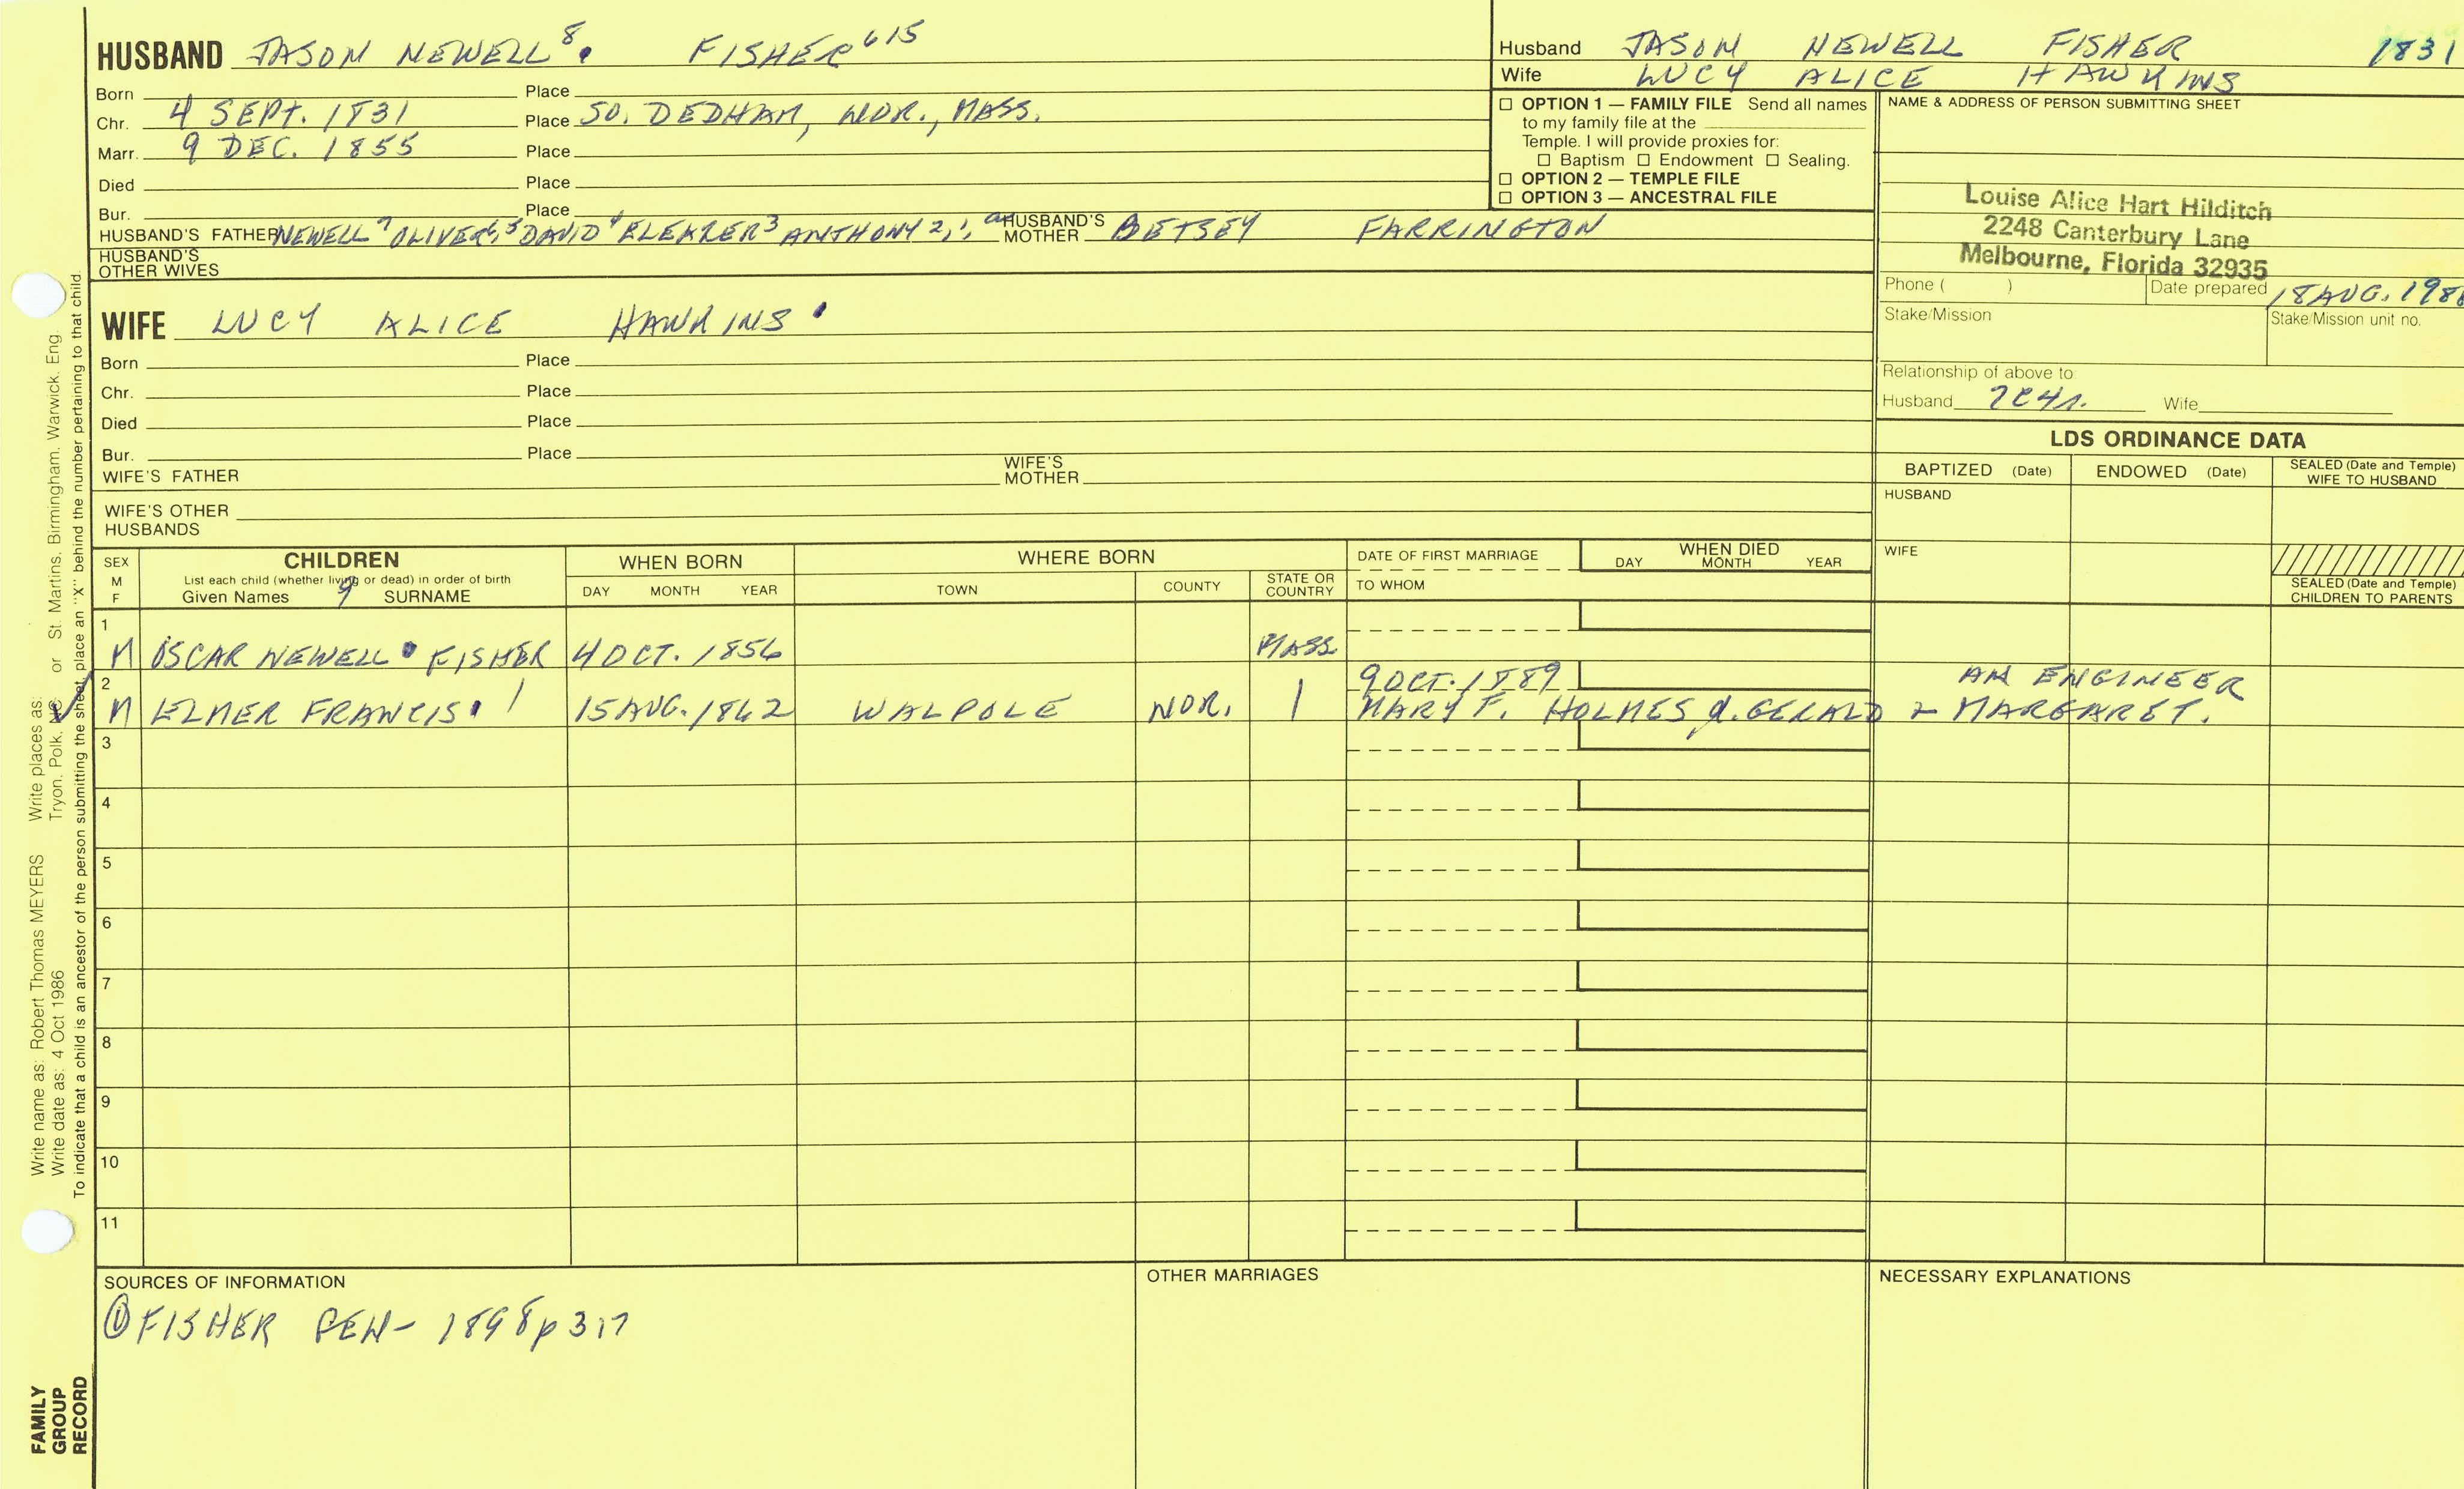 HUSBAND JASON NEWELL⁸. FISHER⁶¹⁵
Born Place
Chr. 4 SEPT. 1831 Place SO. DEDHAM, NOR., MASS.
Marr. 9 DEC. 1855 Place
Died Place
Bur. Place
HUSBAND'S FATHER NEWELL⁷ OLIVER⁶,⁵ DAVID⁴ ELEAZER³ ANTHONY 2,1, HUSBAND'S MOTHER BETSEY FARRINGTON
HUSBAND'S
OTHER WIVES
Husband JASON NEWELL FISHER 1831
Wife LUCY ALICE HAWKINS
☐ OPTION 1 — FAMILY FILE Send all names
to my family file at the
Temple. I will provide proxies for:
☐ Baptism ☐ Endowment ☐ Sealing.
☐ OPTION 2 — TEMPLE FILE
☐ OPTION 3 — ANCESTRAL FILE
NAME & ADDRESS OF PERSON SUBMITTING SHEET
Louise Alice Hart Hilditch
2248 Canterbury Lane
Melbourne, Florida 32935
Phone ( ) Date prepared 18 AUG. 198
Stake/Mission Stake/Mission unit no.
Relationship of above to:
Husband 7C4r. Wife
WIFE LUCY ALICE HAWKINS
Born Place
Chr. Place
Died Place
Bur. Place
WIFE'S FATHER WIFE'S MOTHER
WIFE'S OTHER
HUSBANDS
LDS ORDINANCE DATA
BAPTIZED (Date) ENDOWED (Date) SEALED (Date and Temple) WIFE TO HUSBAND
HUSBAND
WIFE
SEALED (Date and Temple)
CHILDREN TO PARENTS
SEX M F
CHILDREN
List each child (whether living or dead) in order of birth
Given Names 9 SURNAME
WHEN BORN
DAY MONTH YEAR
WHERE BORN
TOWN COUNTY STATE OR COUNTRY
DATE OF FIRST MARRIAGE
TO WHOM
WHEN DIED
DAY MONTH YEAR
1
M OSCAR NEWELL FISHER 4 OCT. 1856 MASS
2 9 OCT. 1889 AN ENGINEER
M ELMER FRANCIS. 15 AUG. 1862 WALPOLE NOR. MARY F. HOLMES d. GERALD & MARGARET.
3
4
5
6
7
8
9
10
11
SOURCES OF INFORMATION
① FISHER GEN- 1898 p 317
OTHER MARRIAGES
NECESSARY EXPLANATIONS
Write name as: Robert Thomas MEYERS Write places as: Tryon, Polk, NC or St. Martins, Birmingham, Warwick, Eng.
Write date as: 4 Oct 1986
To indicate that a child is an ancestor of the person submitting the sheet, place an "X" behind the number pertaining to that child.
FAMILY
GROUP
RECORD